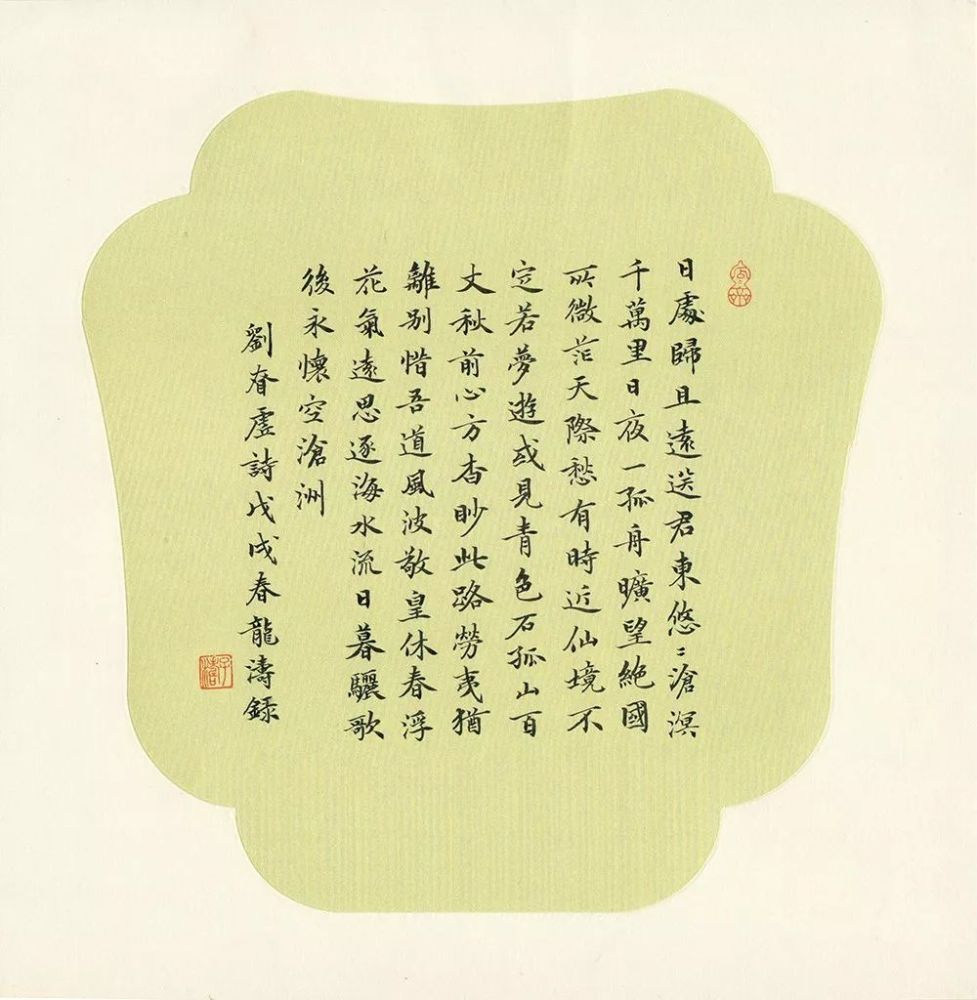 日處歸且遠送君東悠〻滄溟
千萬里日夜一孤舟曠望絕國
所微茫天際愁有時近仙境不
定若夢遊或見青色石孤山百
丈秋前心方杳眇此路勞夷猶
離別惜吾道風波敬皇休春浮
花氣遠思逐海水流日暮驪歌
後永懷空滄洲
劉昚虛詩戊戌春龍濤錄